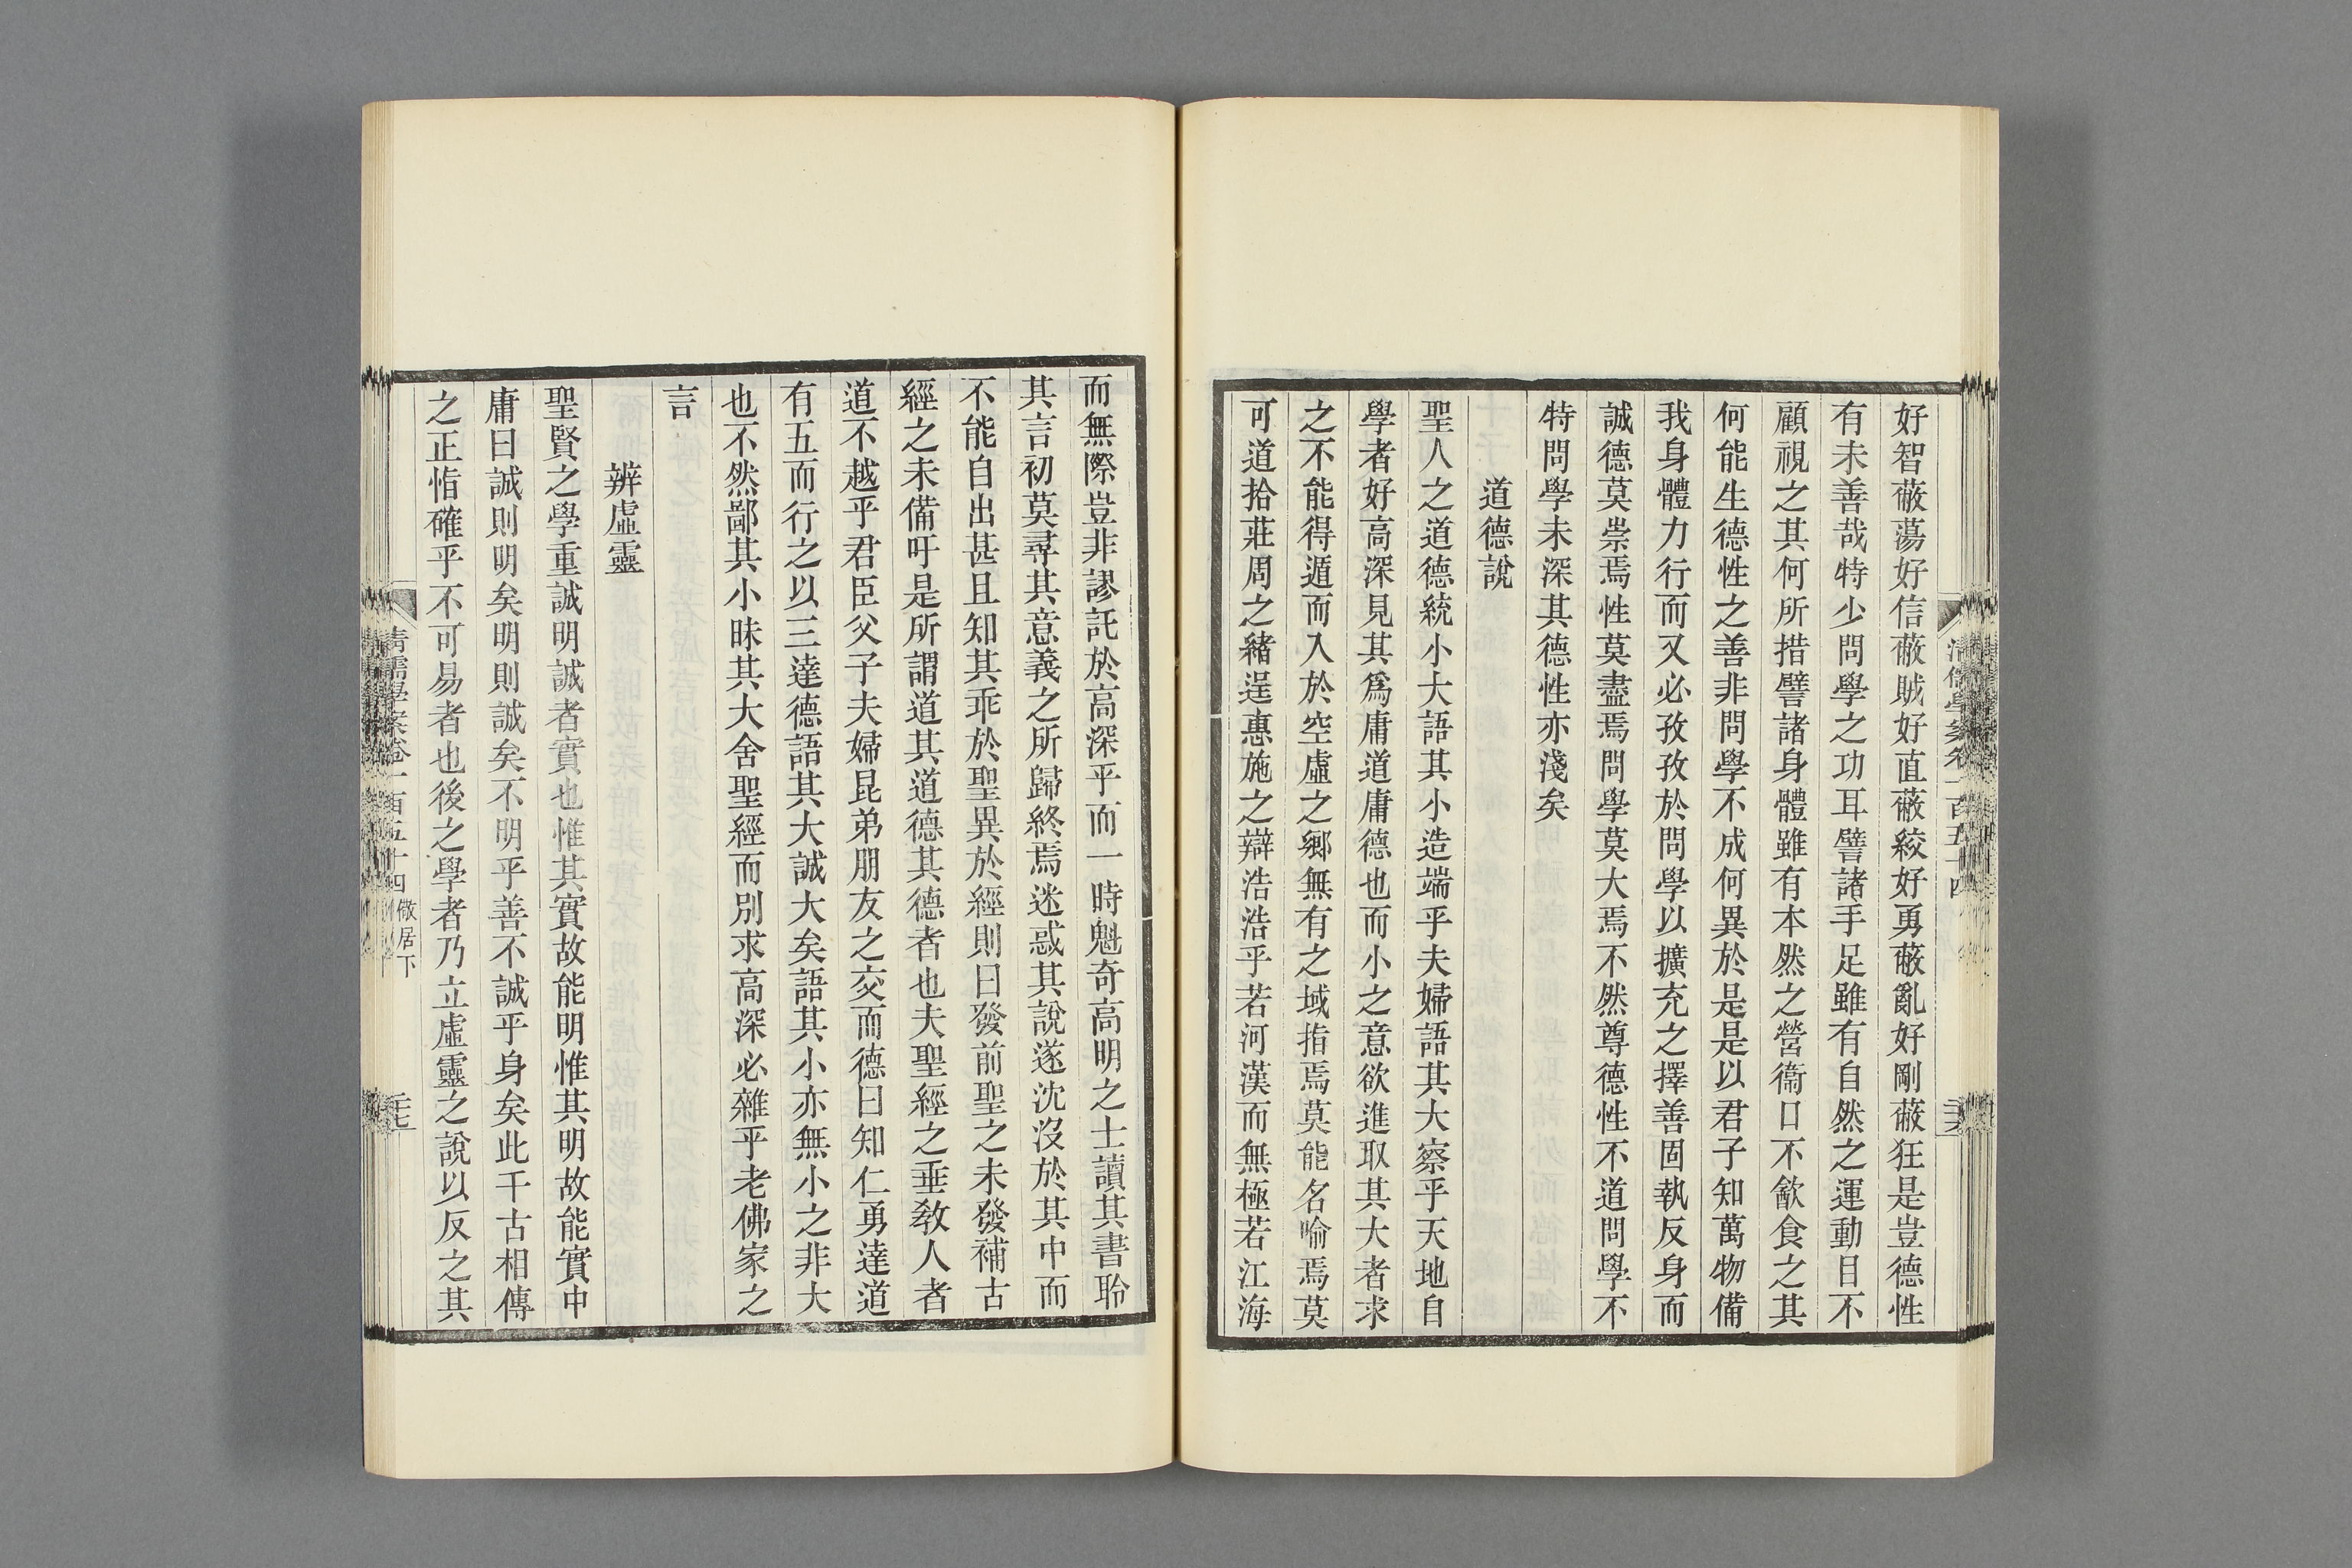 好智蔽蕩好信蔽賊好直蔽絞好勇蔽亂好剛蔽狂是豈德性
有未善哉特少問學之功耳譬諸手足雖有自然之運動目不
顧視之其何所措譬諸身體雖有本然之營衞口不飮食之其
何能生德性之善非問學不成何異於是是以君子知萬物備
我身體力行而又必孜孜於問學以擴充之擇善固執反身而
誠德莫崇焉性莫盡焉問學莫大焉不然尊德性不道問學不
特問學未深其德性亦淺矣
道德說
聖人之道德統小大語其小造端乎夫婦語其大察乎天地自
學者好高深見其爲庸道庸德也而小之意欲進取其大者求
之不能得遁而入於空虛之鄉無有之域指焉莫能名喻焉莫
可道拾莊周之緒逞惠施之辯浩浩乎若河漢而無極若江海
而無際豈非謬託於高深乎而一時魁奇高明之士讀其書聆
其言初莫尋其意義之所歸終焉迷惑其說遂沈沒於其中而
不能自出甚且知其乖於聖異於經則曰發前聖之未發補古
經之未備吁是所謂道其道德其德者也夫聖經之垂教人者
道不越乎君臣父子夫婦昆弟朋友之交而德曰知仁勇達道
有五而行之以三達德語其大誠大矣語其小亦無小之非大
也不然鄙其小昧其大舍聖經而別求高深必雜乎老佛家之
言
辨虛靈
聖賢之學重誠明誠者實也惟其實故能明惟其明故能實中
庸曰誠則明矣明則誠矣不明乎善不誠乎身矣此千古相傳
之正恉確乎不可易者也後之學者乃立虛靈之說以反之其
清儒學案卷一百五十四 儆居下